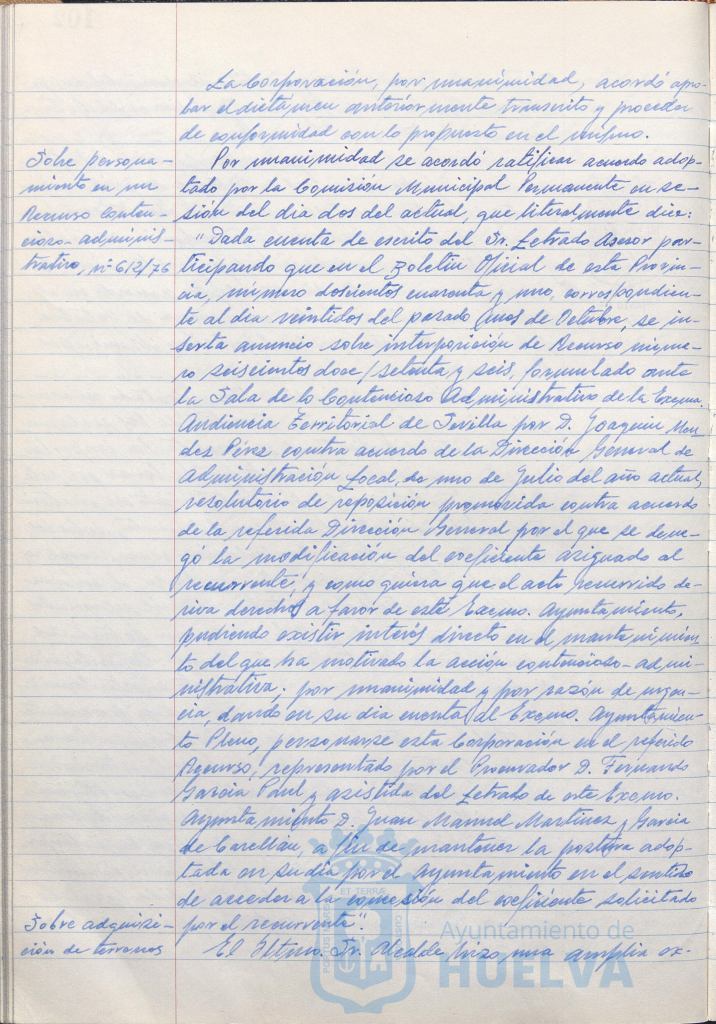 La Corporación, por unanimidad, acordó apro-
bar el dictamen anteriormente transcrito y proceder
de conformidad con lo propuesto en el mismo.
Sobre persona-
miento en un
Recurso Conten-
cioso-adminis-
trativo, nº 612/76
Por unanimidad se acordó ratificar acuerdo adop-
tado por la Comisión Municipal Permanente en se-
sión del dia dos del actual, que literalmente dice:
"Dada cuenta de escrito del Sr. Letrado Asesor par-
ticipando que en el Boletin Oficial de esta Provin-
cia, número doscientos cuarenta y uno, correspondien-
te al dia veintidos del pasado mes de Octubre, se in-
serta anuncio sobre interposición de Recurso núme-
ro seiscientos doce/setenta y seis, formulado ante
la Sala de lo Contencioso Administrativo de la Excma.
Audiencia Territorial de Sevilla por D. Joaquin Men-
dez Pérez contra acuerdo de la Dirección General de
Administración Local, de uno de Julio del año actual,
resolutorio de reposición promovida contra acuerdo
de la referida Dirección General por el que se dene-
gó la modificación del coeficiente asignado al
recurrente; y como quiera que el acto recurrido de-
riva derechos a favor de este Excmo. Ayuntamiento,
pudiendo existir interés directo en el mantenimien-
to del que ha motivado la acción contencioso-admi-
nistrativa; por unanimidad y por razón de urgen-
cia, dando en su dia cuenta al Excmo. Ayuntamien-
to Pleno, personarse esta Corporación en el referido
Recurso, representado por el Procurador D. Fernando
Garcia Paul y asistida del Letrado de este Excmo.
Ayuntamiento D. Juan Manuel Martinez y Garcia
de , a fin de mantener la postura adop-
tada en su dia por el Ayuntamiento en el sentido
de acceder a la concesión del coeficiente solicitado
por el recurrente".
Sobre adquisi-
ción de terrenos
El Iltmo. Sr. Alcalde hizo una amplia ex-
Ayuntamiento de
HUELVA